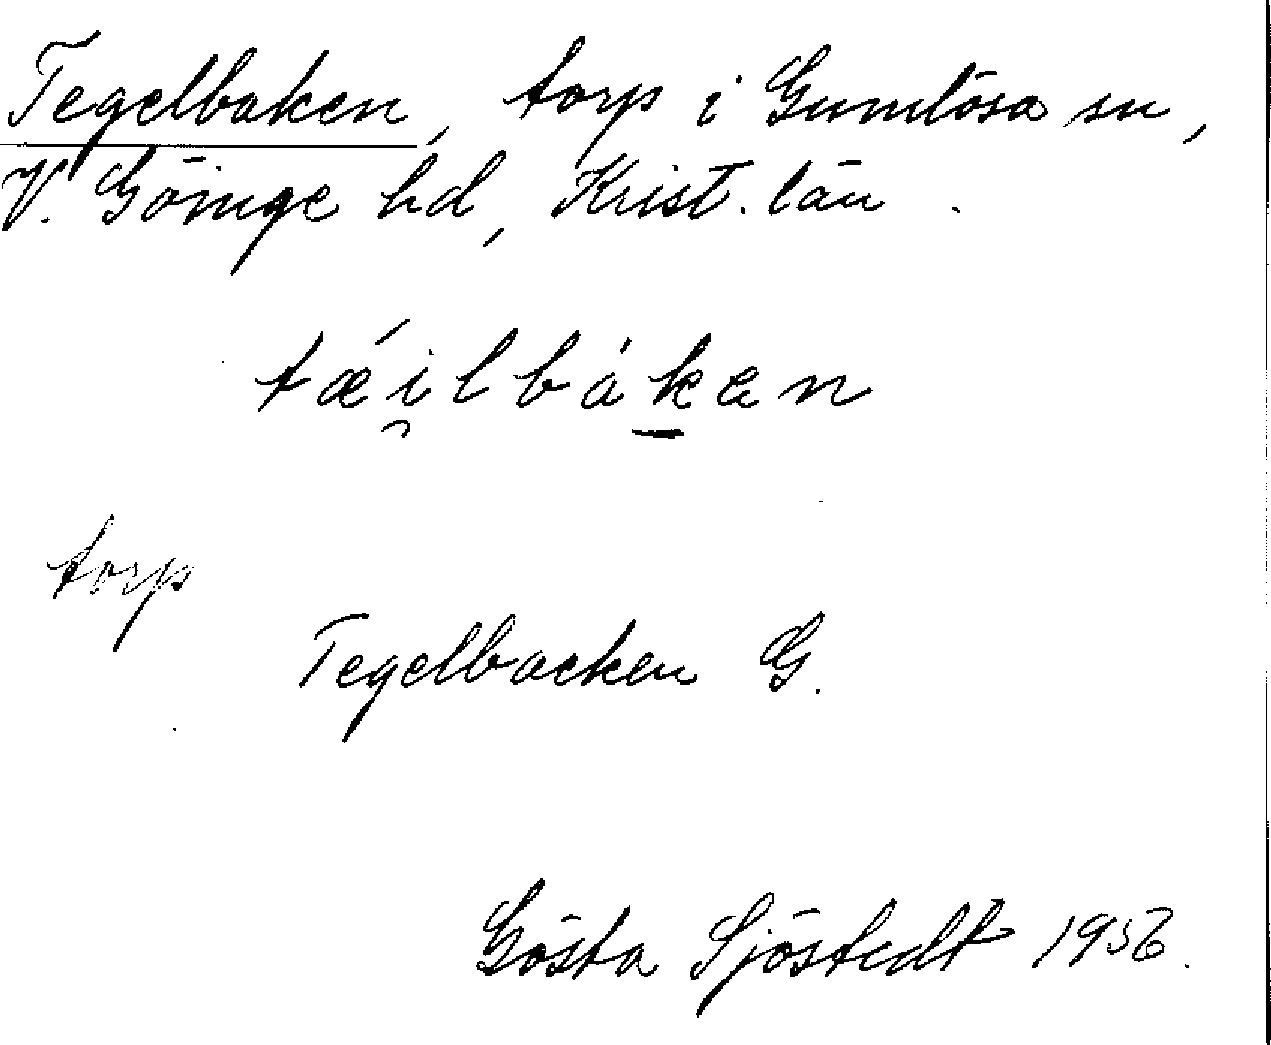 Tegelbaken, torp i Gumlösa sn,
V. Göinge hd, Krist. län.
tǽi̯lbák̠ən
torp
Tegelbacken G.
Gösta Sjöstedt 1956.